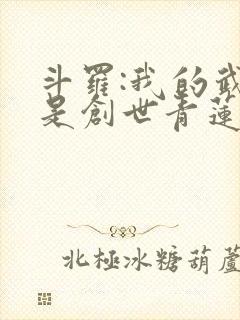 斗羅:我的武
是創世青蓮
北極冰糖葫蘆